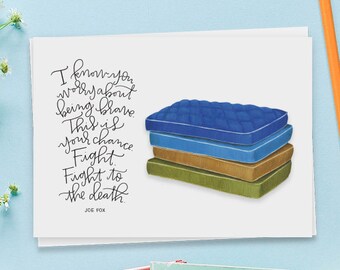 I know you
worry about
being brave.
This is
your chance.
Fight.
Fight to
the death.
JOE FOX